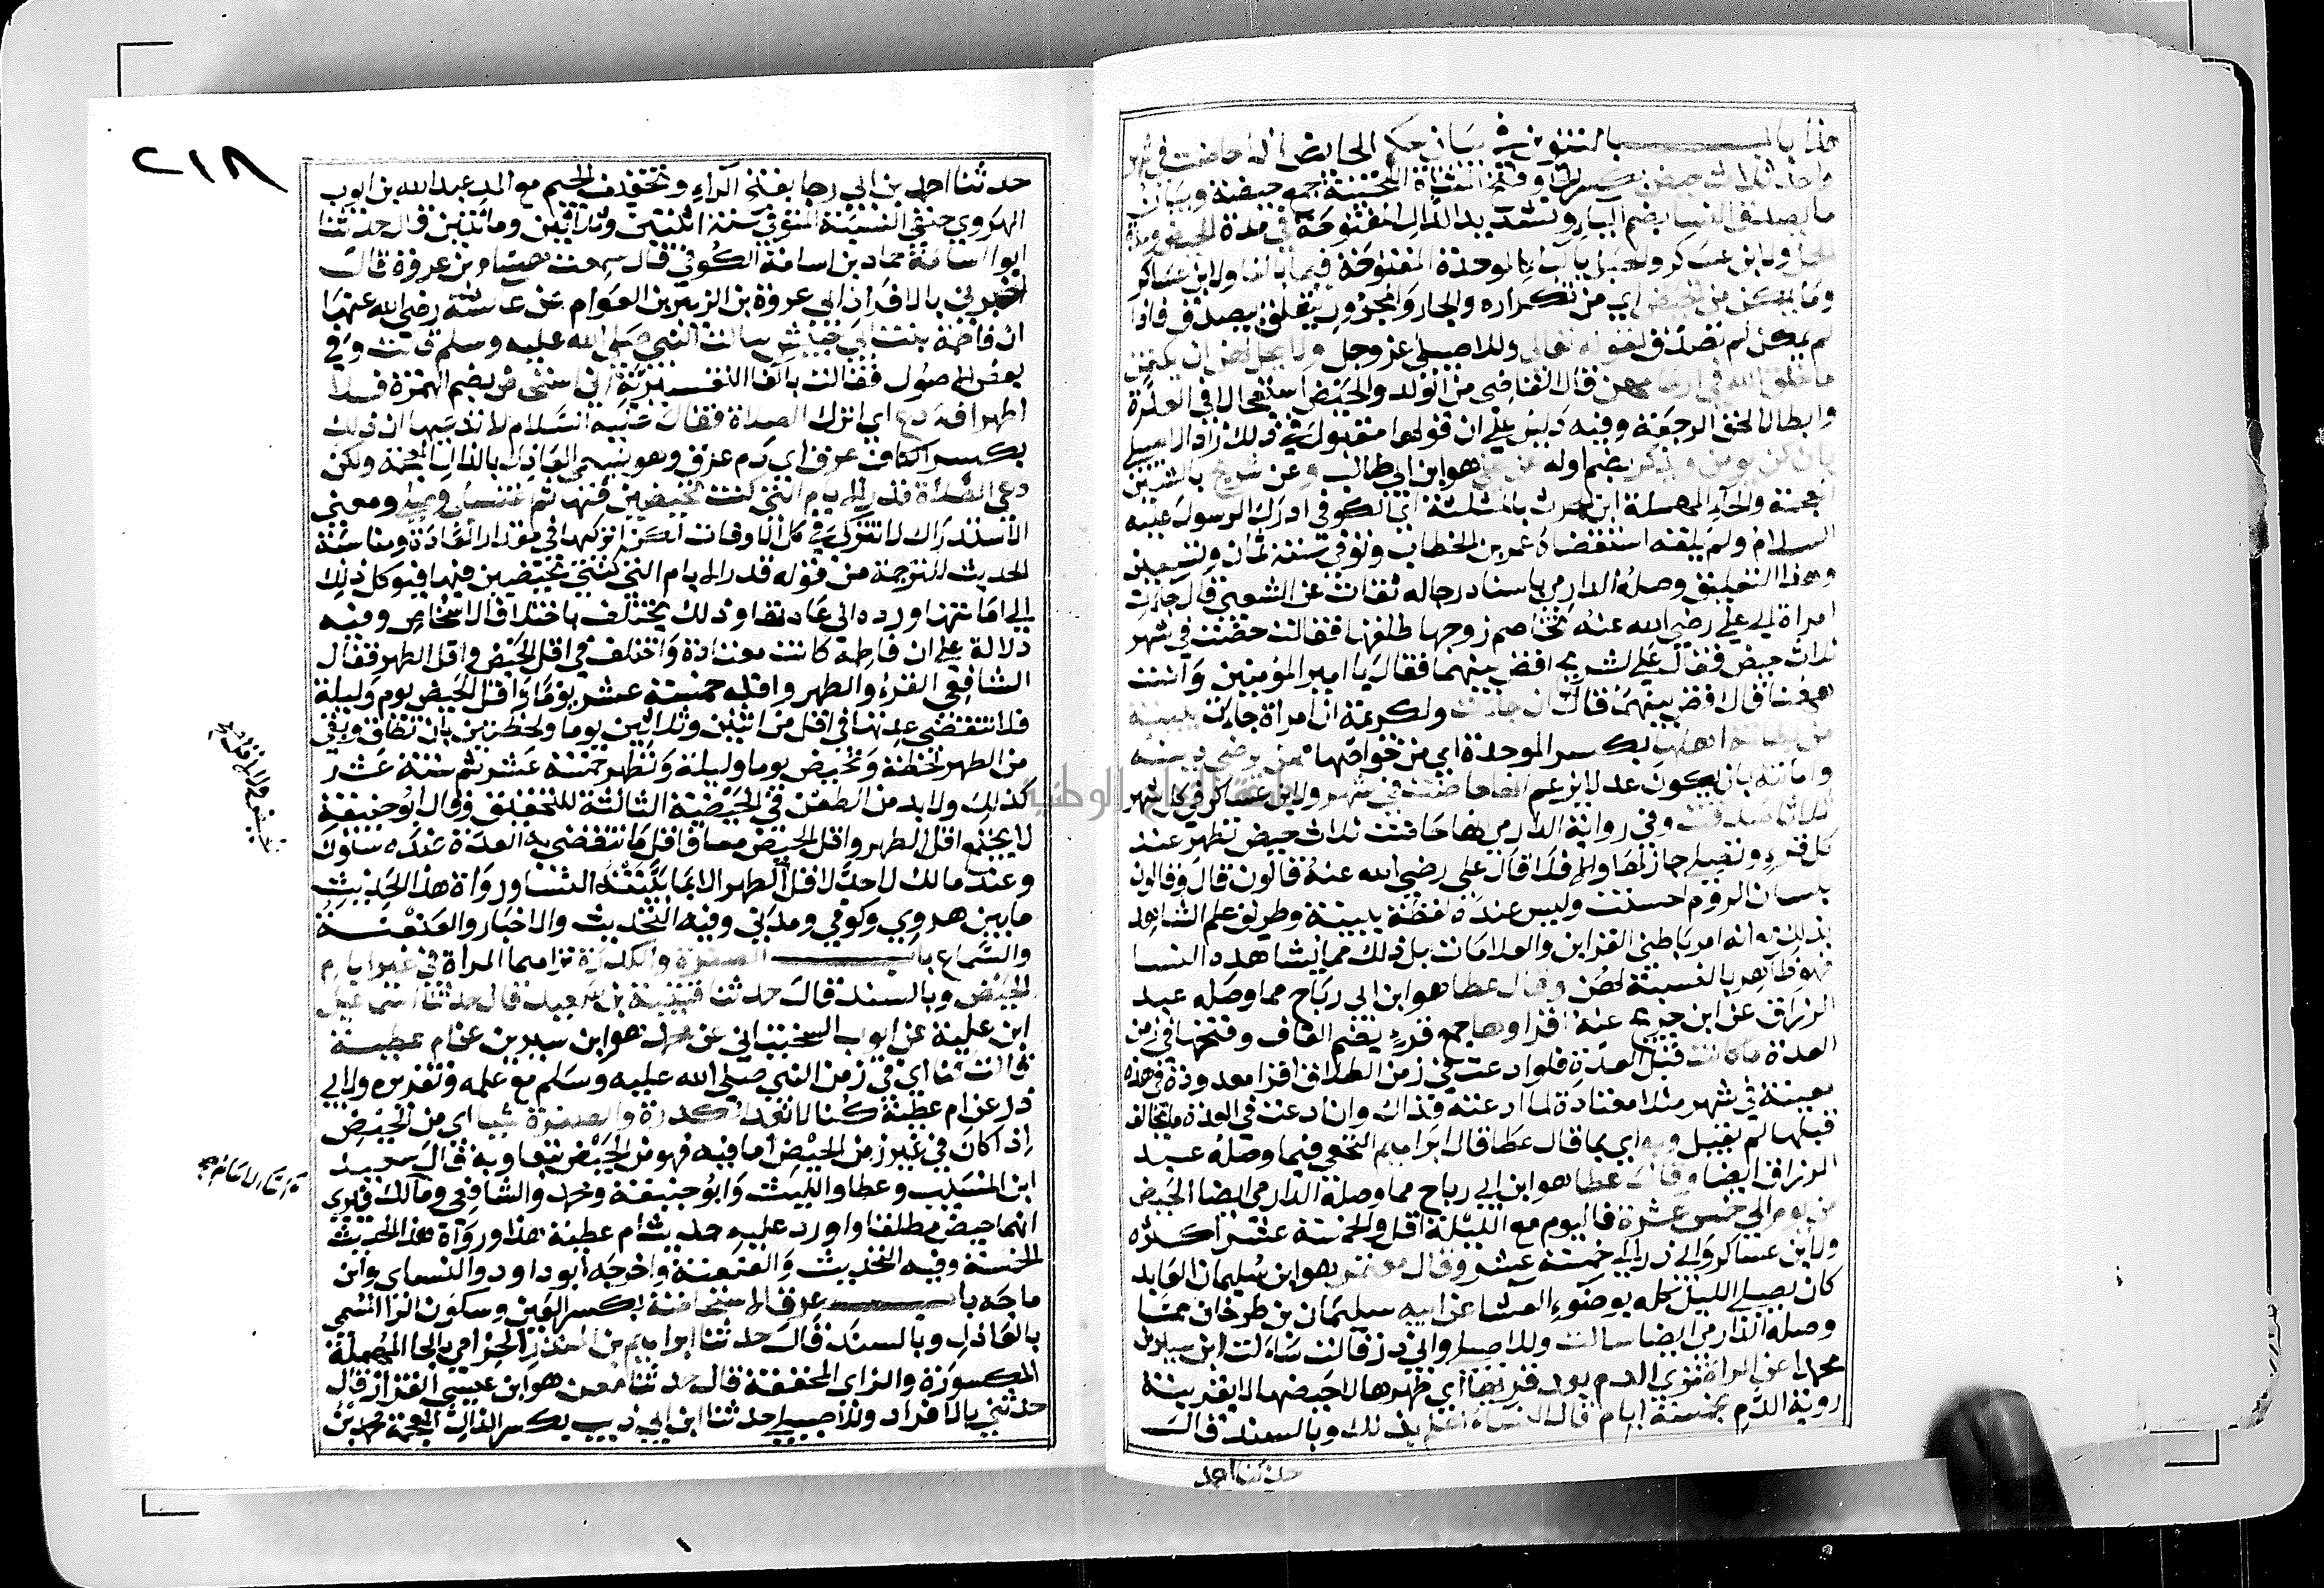 هذا باب بالتنوين في بيان حكم الحائض اذا حاضت في شهر
واحد ثلاث حيض بكسر الحاء وفتح المثناة التحتية جمع حيضة وبيان
ما يصدق النسا بضم اليا وتشديد الدال المفتوحة في مدة الحيض ومدة
الحمل ولابن عساكر والحبل بالباء الموحدة المفتوحة فيما بالفا ولابن عساكر
وما يمكن من الحيض اي من تكراره والجار والمجرور يتعلق بيصدق فاذا
لم يمكن لم تصدق لقوله تعالى وللاصيلي عز وجل ولا يحل لهن ان يكتمن
ما خلق الله في ارحامهن قال القاضي من الولد والحيض استعجالا في العدة
وابطالا لحق الرجعة وفيه دليل على ان قولها مقبول في ذلك زاد الاصيلي
ان كن يومن ويذكر بضم اوله عن علي هو ابن ابي طالب وعن شريح بالشين
المعجمة والحاء المهملة ابن الحرث بالمثلثة اي الكوفي ادرك الرسول عليه
السلام ولم يلقه استقضاه عمر بن الخطاب وتوفي سنة ثمان وتسعين
وهذا التعليق وصله الدارمي باسناد رجاله ثقات عن الشعبي قال جات
امراة الى علي رضي الله عنه تخاصم زوجها طلقها فقالت حضت في شهر
ثلاث حيض فقال علي لشريح اقض بينهما فقال يا امير المومنين وانت
ههنا قال اقض بينهما قال ان جات ولكريمة ان امراة جات ببينة
من بطانة اهلها بكسر الموحدة اي من خواصها ممن يرضى دينه
وامانته بان يكون عدلا يزعم انها حاضت في شهر ولابن عساكر في كل شهر
ثلاثا صدقت وفي رواية الدارمي انها حاضت ثلاث حيض تطهر عند
كل قرء وتصلي جاز لها والا فلا قال علي رضي الله عنه قالون قال وقالون
بلسان الروم احسنت وليس عنده لفظة ببينة وطريق علم الشاهد
بذلك مع انه امر باطني القراين والعلامات بل ذلك مما يشاهده النسا
فهو ظاهر بالنسبة لهن وقال عطا هو ابن ابي رباح مما وصله عبد
الرزاق عن ابن جريج عنه اقراوها جمع قرء بضم القاف وفتحها في زمن
العدة ما كانت قبل العدة فلو ادعت في زمن الطلاق اقرا معدودة في مدة
معينة في شهر مثلا معتادة لما ادعته فذاك وان ادعت في العدة ما يخالف
قبلها لم يقبل وبه اي بما قال عطا قال ابراهيم النخعي فيما وصله عبد
الرزاق ايضا وقال عطا هو ابن ابي رباح مما وصله الدارمي ايضا الحيض
من يوم الى خمس عشرة فاليوم مع الليلة اقل والخمسة عشر اكثره
ولابن عساكر وابي ذر الى خمسة عشر وقال معتمر هو ابن سليمان العابد
كان يصلي الليل كله بوضوء العشا عن ابيه سليمان بن طرخان مما
وصله الدارمي ايضا سالت وللاصيلي وابي ذر قالت سالت ابن سيرين
محمدا عن المراة ترى الدم بعد قرئها اي طهرها لا حيضها لا بقرينة
روية الدم بخمسة ايام قال النساء اعلم بذلك وبالسند قال
حدثنا احمد
٢١٨
حدثنا احمد بن ابي رجا بفتح الراء وتخفيف الجيم مع المد عبد الله بن ايوب
الهروي حنفي النسبة المتوفي سنة اثنتين وثلاثين ومائتين قال حدثنا
ابو اسامة حماد بن اسامة الكوفي قال سمعت هشام بن عروة قال
اخبرني بالافراد ابي عروة بن الزبير بن العوام عن عائشة رضي الله عنها
ان فاطمة بنت ابي حبيش سالت النبي صلى الله عليه وسلم قالت وفي
بعض الاصول فقالت بالفا التفسيرية اني استحاض بضم الهمزة فلا
اطهر افادع اي اترك الصلاة فقال عليه السلام لا تدعيها ان ذلك
بكسر الكاف عرق اي دم عرق وهو يسمى العاذل بالذال المعجمة ولكن
دعي الصلاة قدر الايام التي كنت تحيضين فيها ثم اغتسلي وصلي ومعنى
الاستدراك لا تتركي في كل الاوقات لكن اتركيها في مقدار العادة ومناسبة
الحديث للترجمة من قوله قدر الايام التي كنتي تحيضين فيها فيوكل ذلك
الى امانتها ورده الى عادتها وذلك يختلف باختلاف الاشخاص وفيه
دلالة على ان فاطمة كانت معتادة واختلف في اقل الحيض واقل الطهر فقال
الشافعي القرء والطهر واقله خمسة عشر يوما واقل الحيض يوم وليلة
فلا تنقضي عدتها في اقل من اثنين وثلاثين يوما ولحظتين بان تطلق وبقي
من الطهر لحظة وتحيض يوما وليلة وتطهر خمسة عشر ثم ستة عشر
كذلك ولا بد من الطعن في الحيضة الثالثة للتحقق وقال ابو حنيفة
لا يجتمع اقل الطهر واقل الحيض معا فاقل ما تنقضي به العدة عنده ستون
وعند مالك لا حد لاقل الطهر الا بما بينته النسا ورواة هذا الحديث
ما بين هروي وكوفي ومدني وفيه التحديث والاخبار والعنعنة
والسماع باب الصفرة والكدرة تراهما المراة في غير ايام
الحيض وبالسند قال حدثنا قتيبة بن سعيد قال حدثنا اسمعيل
ابن علية عن ايوب السختياني عن محمد هو ابن سيرين عن ام عطية
قالت كنا اي في زمن النبي صلى الله عليه وسلم مع علمه وتقريره ولابي
ذر عن ام عطية كنا لا نعد الكدرة والصفرة شيا اي من الحيض
اذا كان في غير زمن الحيض اما فيه فهو من الحيض تبعا وبه قال سعيد
ابن المسيب وعطا والليث وابو حنيفة ومحمد والشافعي ومالك فيرى
انها حيض مطلقا واورد عليه حديث ام عطية هذا ورواة هذا الحديث
الخمسة وفيه التحديث والعنعنة واخرجه ابو داود والنساي وابن
ماجه باب عرق الاستحاضة بكسر العين وسكون الرا المسمى
بالعاذل وبالسند قال حدثنا ابراهيم بن المنذر الحزامي بالحا المهملة
المكسورة والزاي المخففة قال حدثنا معن هو ابن عيسى القزاز قال
حدثني بالافراد وللاصيلي حدثنا ابن ابي ذيب بكسر الذال المعجمة محمد بن